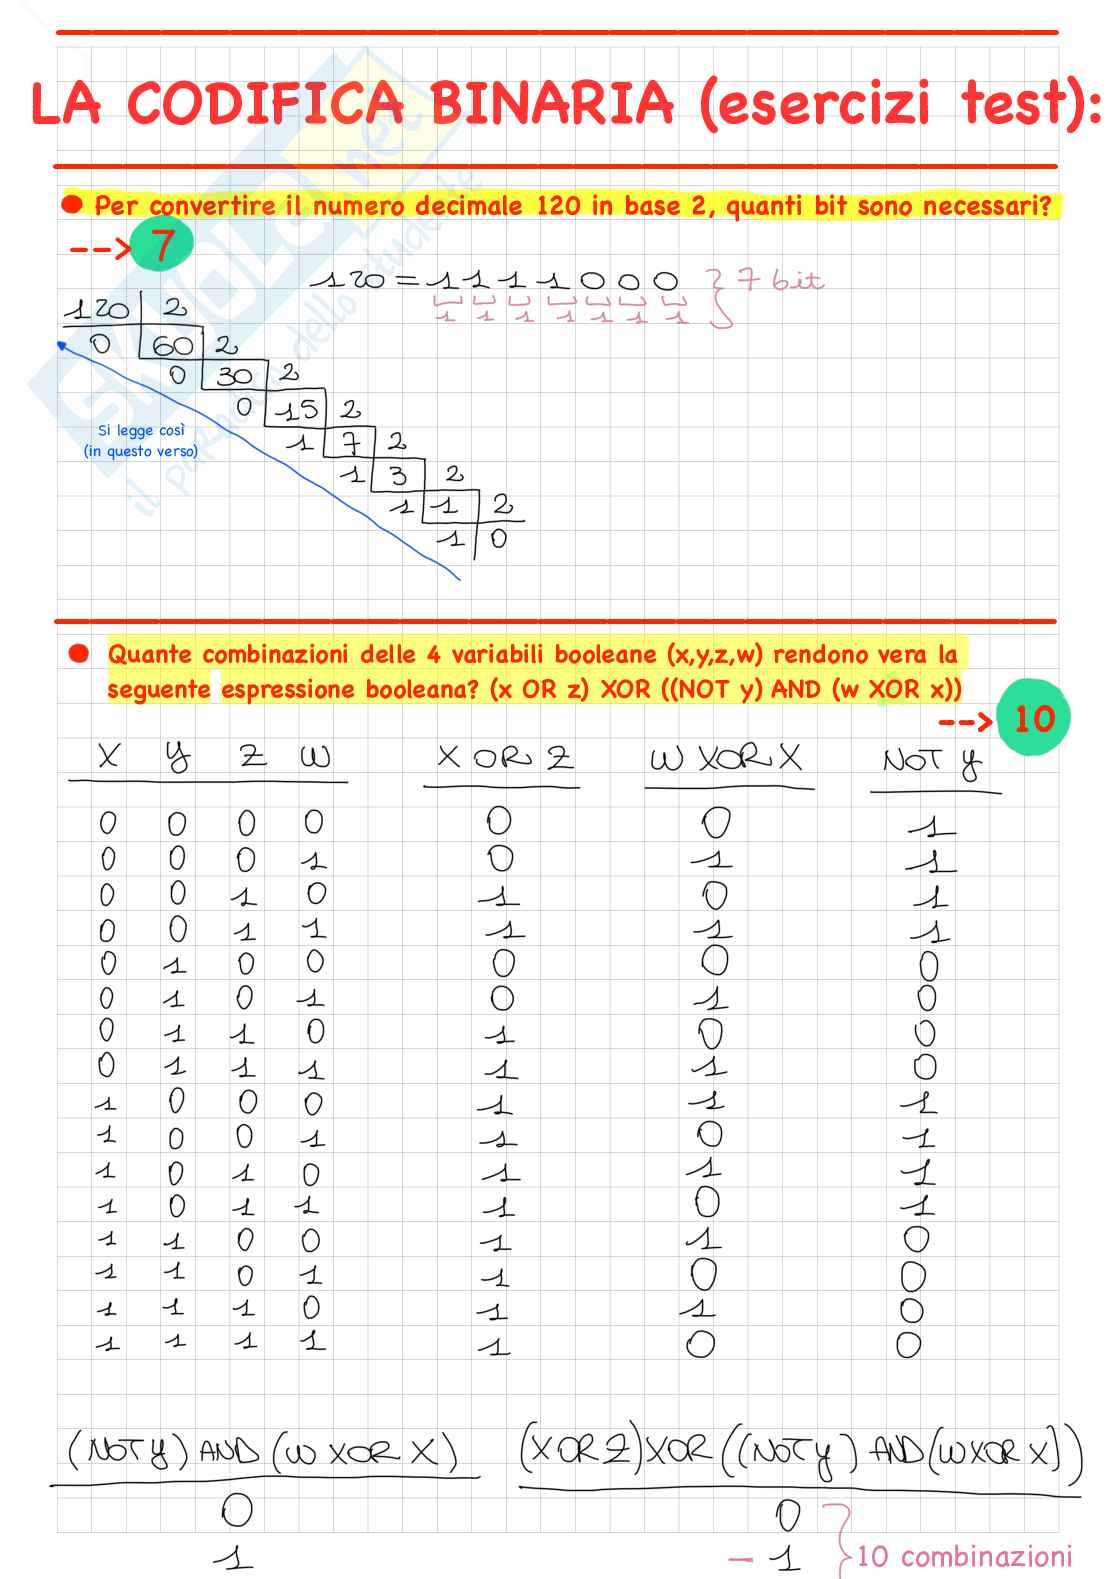 LA CODIFICA BINARIA (esercizi test):
Per convertire il numero decimale 120 in base 2, quanti bit sono necessari?
--> 7
120 = 1111000 } 7 bit
1 1 1 1 1 1 1
120 2
0 60 2
0 30 2
0 15 2
1 7 2
1 3 2
1 1 2
1 0
Si legge così
(in questo verso)
Quante combinazioni delle 4 variabili booleane (x,y,z,w) rendono vera la
seguente espressione booleana? (x OR z) XOR ((NOT y) AND (w XOR x))
--> 10
X Y Z W X OR Z W XOR X NOT Y
0 0 0 0 0 0 1
0 0 0 1 0 1 1
0 0 1 0 1 0 1
0 0 1 1 1 1 1
0 1 0 0 0 0 0
0 1 0 1 0 1 0
0 1 1 0 1 0 0
0 1 1 1 1 1 0
1 0 0 0 1 1 1
1 0 0 1 1 0 1
1 0 1 0 1 1 1
1 0 1 1 1 0 1
1 1 0 0 1 1 0
1 1 0 1 1 0 0
1 1 1 0 1 1 0
1 1 1 1 1 0 0
(NOT Y) AND (W XOR X) (X OR Z) XOR ((NOT Y) AND (W XOR X))
0 0
1 – 1 } 10 combinazioni
SKUOLA.net
il paradiso dello studente